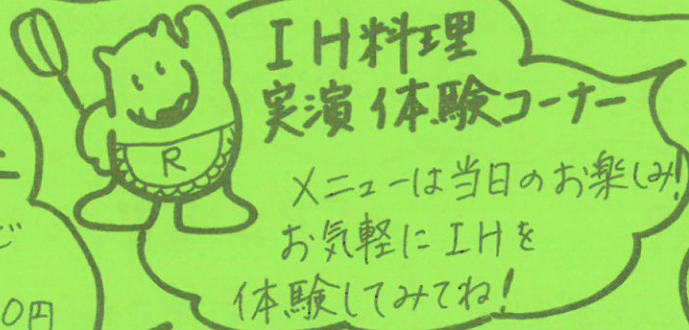 IH料理
実演体験コーナー
R
メニューは当日のお楽しみ!
お気軽にIHを
体験してみてね!
0円